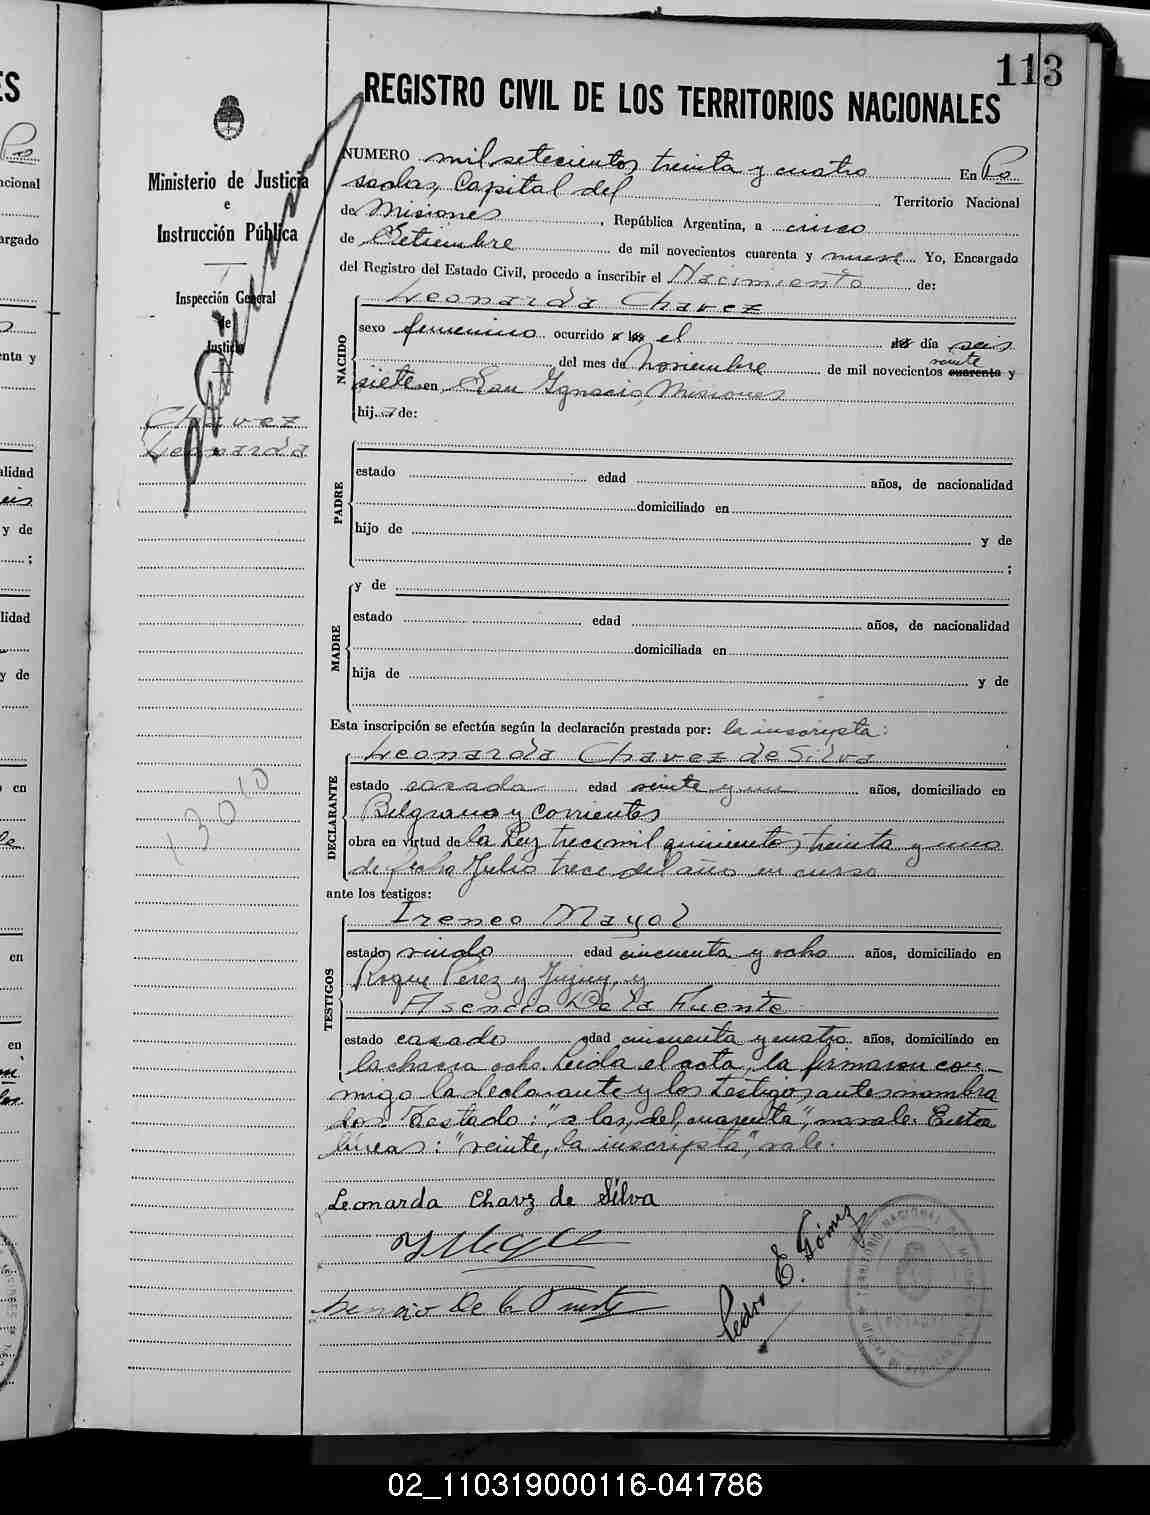 113
REGISTRO CIVIL DE LOS TERRITORIOS NACIONALES
Ministerio de Justicia
e
Instrucción Pública
Inspección General
de
Justicia
Chavez
Leonarda
13010
NUMERO mil setecientos treinta y cuatro En Po
sadas, Capital del Territorio Nacional
de Misiones, República Argentina, a cinco
de Setiembre de mil novecientos cuarenta y nueve Yo, Encargado
del Registro del Estado Civil, procedo a inscribir el Nacimiento de:
NACIDO
Leonarda Chavez
sexo femenino ocurrido a las el del día seis
veinte
del mes de Noviembre de mil novecientos cuarenta y
siete en San Ignacio, Misiones
hija de:
PADRE
estado edad años, de nacionalidad
domiciliado en
hijo de y de
;
MADRE
y de
estado edad años, de nacionalidad
domiciliada en
hija de y de
Esta inscripción se efectúa según la declaración prestada por: la inscripta:
DECLARANTE
Leonarda Chavez de Silva
estado casada edad veinte y un años, domiciliado en
Belgrano y Corrientes
obra en virtud de la Ley trece mil quinientos treinta y uno
de fecha Julio trece del año en curso
ante los testigos:
TESTIGOS
Ireneo Mayol
estado viudo edad cincuenta y ocho años, domiciliado en
Roque Perez y Jujuy, y
Asencio De la Fuente
estado casado edad cincuenta y cuatro años, domiciliado en
la chacra ocho. Leida el acta, la firmaron con-
migo la declarante y los testigos antes nombra
dos. Testado: "a las, del, cuarenta", no vale. Entre
lineas: "veinte, la inscripta", vale.
Leonarda Chavz de Silva
Asencio De la Fuente
Pedro E. Gómez
TERRITORIO NACIONAL DE MISIONES
POSADAS
02_110319000116-041786